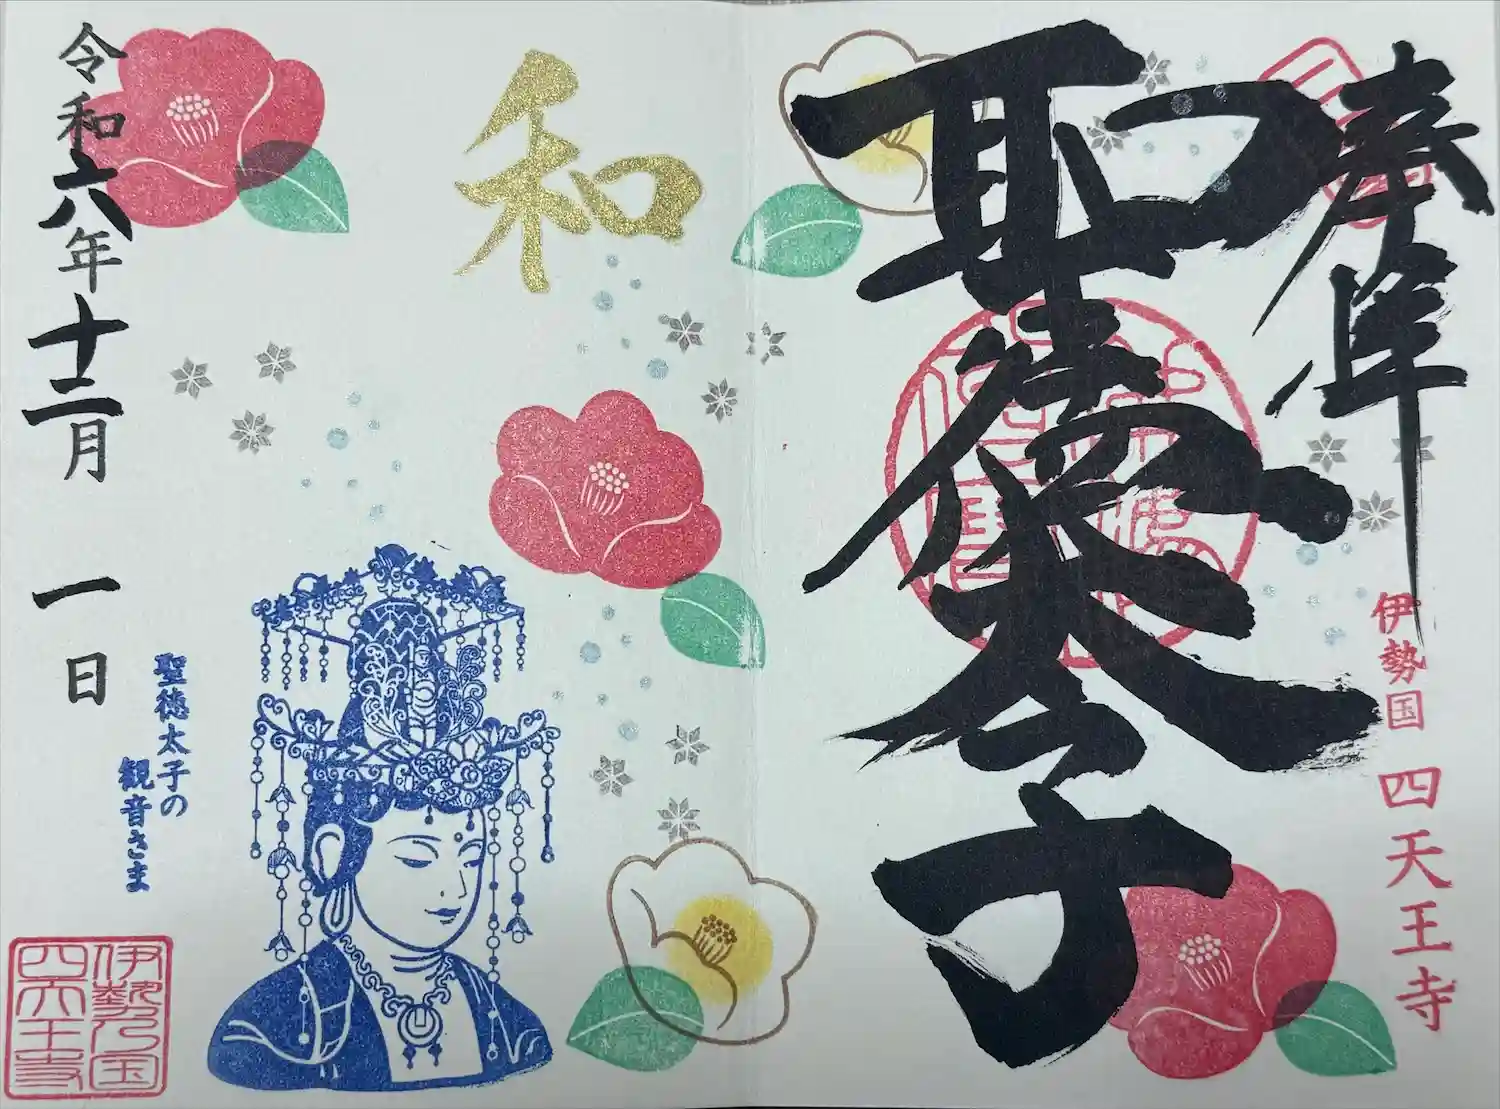 奉拝
聖徳太子
伊勢国 四天王寺
和
令和六年十二月 一日
聖徳太子の
観音さま
伊勢国
四天王寺